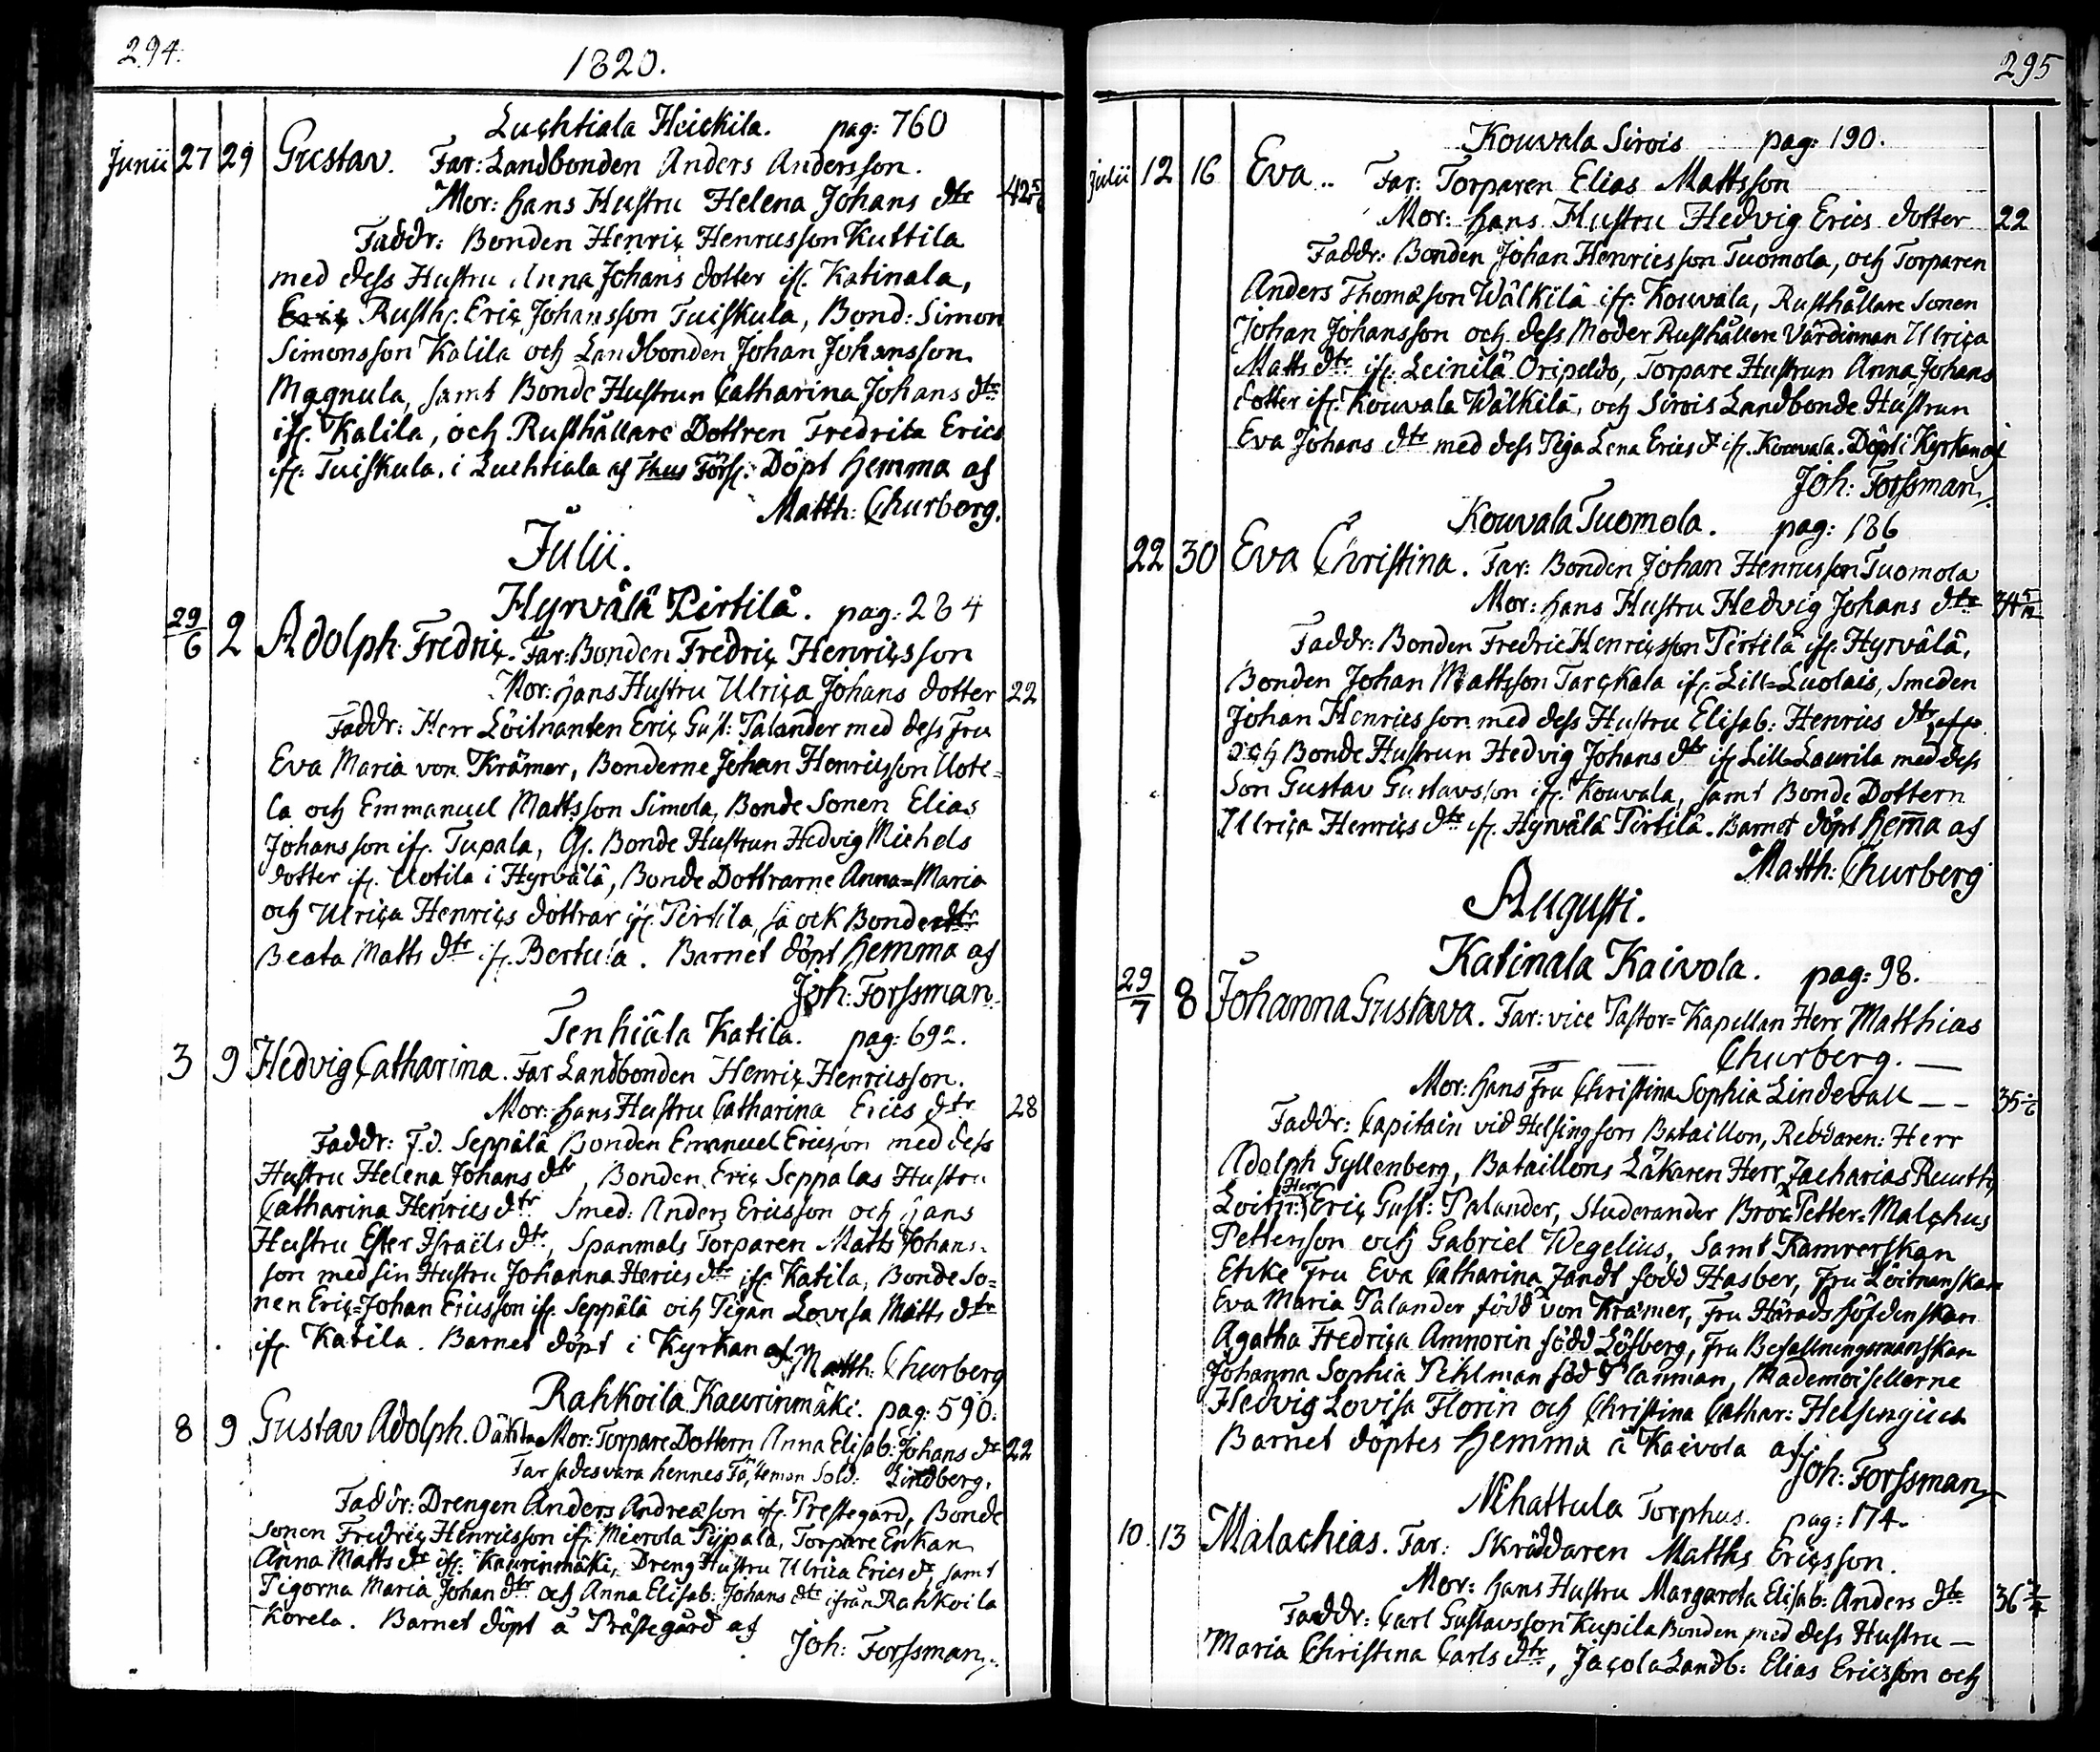 294.
1820.
Luchtiala Heickila. pag: 760
Junii 27 29 Gustav. Far: Landbonden Anders Andersson.
Mor: hans Hustru Helena Johans dtr 42 5/6
Faddr: Bonden Henric Henricsson Kuttila
med dess Hustru Anna Johans dotter ifr. Katinala,
Eric Rusth. Eric Johansson Tuiskula, Bond: Simon
Simonsson Kalila och Landbonden Johan Johansson
Magnula, samt Bonde Hustrun Catharina Johans dtr
ifr. Kalila, och Rusthållare Dottren Fredrica Erics
ifr. Tuiskula. i Luchtiala af Förs. Döpt hemma af
Matth: Churberg.
Julii.
Hyrvälä Pirtilä. pag: 284
29/6 2 Adolph Fredric. Far: Bonden Fredric Henricsson
Mor: hans Hustru Ulrica Johans dotter 22
Faddr: Herr Löitnanten Eric Gust: Palander med dess Fru
Eva Maria von Krämer, Bonderne Johan Henricsson Uoti=
la och Emmanuel Mattsson Simola, Bonde Sonen Elias
Johansson ifr. Tupala, Gl. Bonde Hustrun Hedvig Michels
dotter ifr. Uotila i Hyrvälä, Bonde Dottrarne Anna=Maria
och Ulrica Henrics dottrar ifr. Pirtila, så ock Bonde dtr
Beata Matts dtr ifr. Bertula. Barnet döpt hemma af
Joh: Forssman.
Tenhiäla Katila. pag: 692.
3 9 Hedvig Catharina. Far Landbonden Henric Henricsson.
Mor: hans Hustru Catharina Erics dtr 28
Faddr: F.d. Seppälä Bonden Emanuel Ericsson med dess
Hustru Helena Johans dtr, Bonden Eric Seppalas Hustru
Catharina Henrics dtr Smed: Anders Ericsson och hans
Hustru Ester Israëls dtr, Spanmals Torparen Matts Johans-
son med sin Hustru Johanna Henrics dtr ifr. Katila, Bonde So=
nen Eric=Johan Ericsson ifr. Seppälä och Pigan Lovisa Matts dtr
ifr. Katila. Barnet döpt i Kyrkan af
Matth: Churberg
Rahkoila Kaurinmäki. pag: 590.
8 9 Gustav Adolph. Oäkta Mor: Torpare Dottern Anna Elisab: Johans dr 22
Far sades vara hennes Fästeman Sold: Lindberg.
Faddr: Drengen Anders Andreasson ifr. Prestegård, Bonde
Sonen Fredric Henricsson ifr. Mierola Pijpala, Torpare Enkan
Anna Matts dr ifr. Kaurinmäki, Dreng Hustru Ulrica Erics dr, samt
Pigorna Maria Johan dtr och Anna Elisab: Johans dtr ifrån Rahkoila
Korela. Barnet döpt å Prästegård af
Joh: Forssman.
295
Kouvala Sirois pag: 190.
Julii 12 16 Eva. Far: Torparen Elias Mattsson
Mor: hans Hustru Hedvig Erics dotter 22
Faddr: Bonden Johan Henricsson Tuomola, och Torparen
Anders Thomasson Wälkilä ifr. Kouvala, Rusthållare Sonen
Johan Johansson och dess Moder Rusthållare Värdinnan Ulrica
Matts dtr ifr. Leinilä Oripeldo, Torpare Hustrun Anna Johans
dotter ifr. Kouvala Wälkilä, och Sirois Landbonde Hustrun
Eva Johans dtr med dess Piga Lena Erics d ifr. Kouvala. Döpt i Kyrkan af
Joh: Forssman.
Kouvala Tuomola. pag: 186
22 30 Eva Christina. Far: Bonden Johan Henricsson Tuomola
Mor: hans Hustru Hedvig Johans dtr
Faddr: Bonden Fredric Henricsson Pirtilä ifr. Hyrvälä,
Bonden Johan Mattsson Tarckala ifr. Lill=Luolais, Smeden
Johan Henricsson med dess Hustru Elisab: Henrics dtr
och Bonde Hustrun Hedvig Johans dtr ifr Lill=Laurila med dess
Son Gustav Gustavsson ifr. Kouvala, samt Bonde Dottern
Ullrica Henrics dtr ifr. Hyrvälä Pirtilä. Barnet döpt hem̄a af
Matth: Churberg
Augusti.
Katinala Kaivola. pag: 98.
29/7 8 Johanna Gustava. Far: vice Pastor= Kapellan Herr Matthias
Churberg. —
Mor: hans Fru Christina Sophia Lindevall — 35
Faddr: Capitain vid Helsingfors Bataillon, Riddaren: Herr
Adolph Gyllenberg, Bataillons Läkaren Herr Zacharias Ruuth,
Loitn: Herr Eric Gust: Palander, Studerander Petter=Malchus
Pettersson och Gabriel Wegelius, Samt Kamrerskan
Enke Fru Eva Catharina Zandt född Hasber, Fru Löitnanskan
Eva Maria Palander född von Krämer, Fru Häradshöfdenskan
Agatha Fredrica Amnorin född Löfberg, Fru Befallningsmanskan
Johanna Sophia Pihlman föd Planman, Mademoisellerne
Hedvig Lovisa Florin och Christina Cathar: Helsingius
Barnet döptes hemma å Kaivola af
Joh: Forssman
Nihattula Torphus. pag: 174.
10 13 Malachias. Far: Skräddaren Matths Ericsson.
Mor: hans Hustru Margareta Elisab: Anders dtr 36 3/4
Faddr: Carl Gustavsson Kupila Bonden med dess Hustru —
Maria Christina Carls dtr, Jacola Landb: Elias Ericsson och